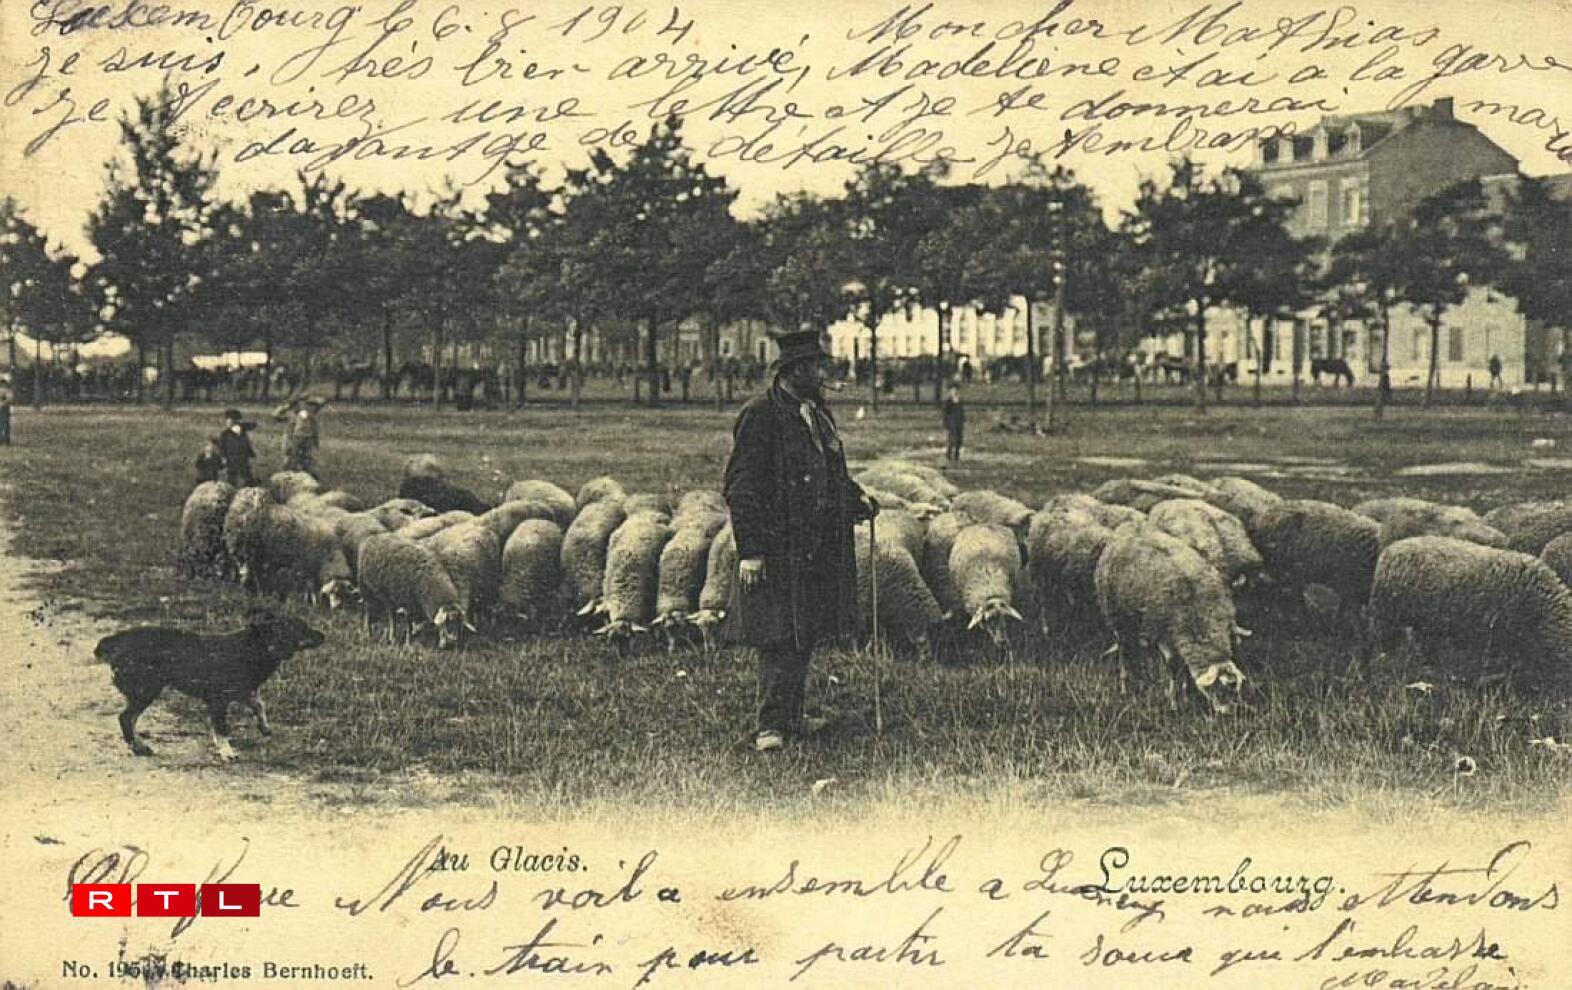 Luxembourg le 6. 8 1904 Mon cher Mathias
je suis, très bien arrivé, Madeleine étai a la garre
je t'ecrirez une lettre et je te donnerai
davantge de détaille je t'embrasse
Au Glacis. Luxembourg.
Nous voila ensemble a nous attendons
RTL
le train pour partir ta soeur qui t'embrasse
No. 195 Charles Bernhoeft.